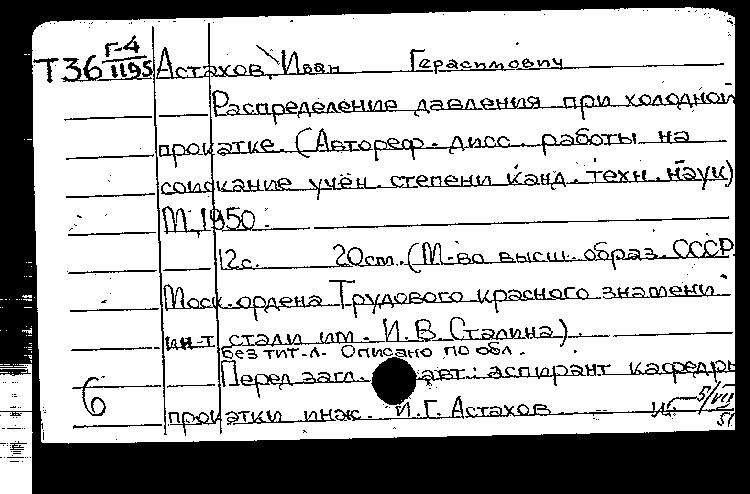 Г-4
Т36 1195 Астахов, Иван Герасимович
Распределение давления при холодной
прокатке. (Автореф. дисс. работы на
соискание учён. степени канд. техн. наук)
М., 1950.
12с. 20см. (М-во высш. образ. СССР.
Моск. ордена Трудового красного знамени
ин-т стали им. И.В. Сталина).
Без тит. л. Описано по обл.
Перед загл. авт.: аспирант кафедры
6 прокатки инж. И.Г. Астахов 5/VII
51